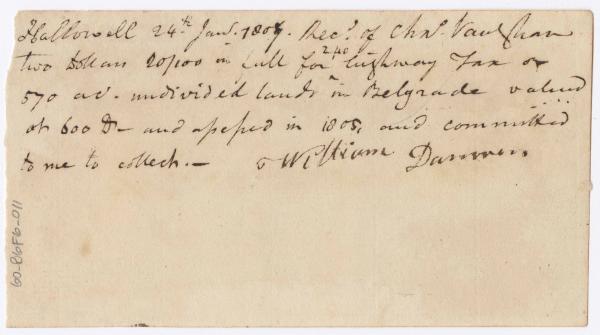 Hallowell 24th Jany. 1807. Recd. of Chas. Vaughan
two dollars 20/100 in full for 240 highway Tax on
570 ac. undivided lands in Belgrade valued
at 600 D— and assessed in 1805, and committed
to me to collect.— William
60-B6F6-011